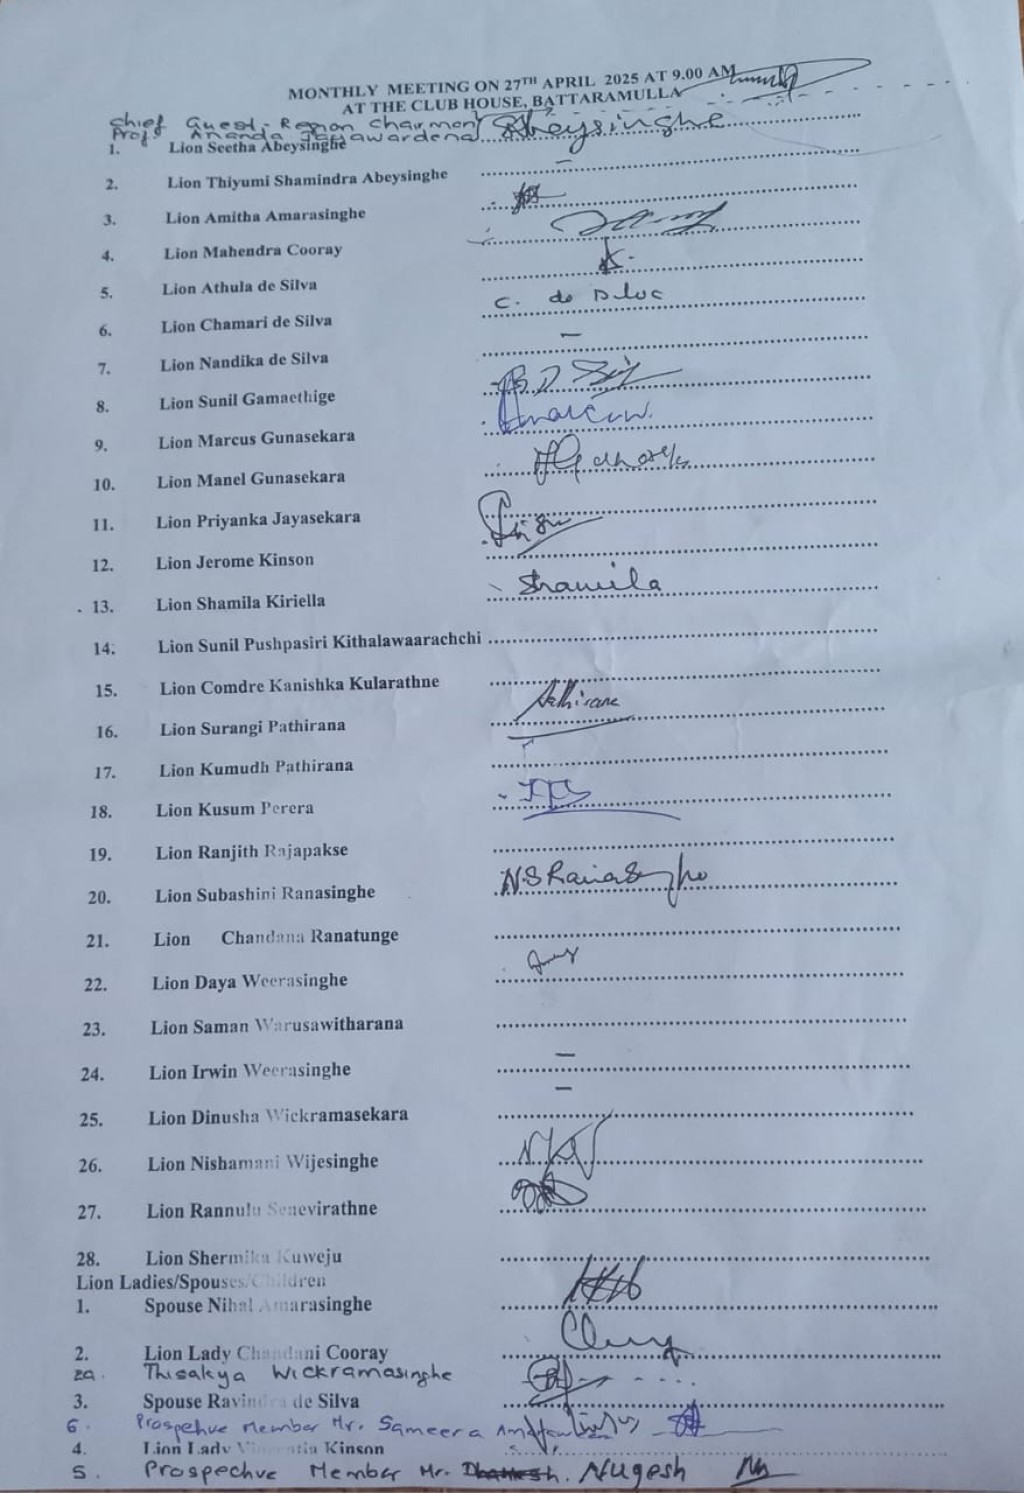 MONTHLY MEETING ON 27TH APRIL 2025 AT 9.00 AM
AT THE CLUB HOUSE, BATTARAMULLA
Chief Guest - Region Chairmon
Prof. Ananda Jayawardena
1. Lion Seetha Abeysinghe Abeysinghe
2. Lion Thiyumi Shamindra Abeysinghe –
3. Lion Amitha Amarasinghe
4. Lion Mahendra Cooray
5. Lion Athula de Silva
6. Lion Chamari de Silva C. de Silva
7. Lion Nandika de Silva –
8. Lion Sunil Gamaethige
9. Lion Marcus Gunasekara
10. Lion Manel Gunasekara
11. Lion Priyanka Jayasekara
12. Lion Jerome Kinson
13. Lion Shamila Kiriella Shamila
14. Lion Sunil Pushpasiri Kithalawaarachchi
15. Lion Comdre Kanishka Kularathne
16. Lion Surangi Pathirana Pathirana
17. Lion Kumudh Pathirana
18. Lion Kusum Perera
19. Lion Ranjith Rajapakse
20. Lion Subashini Ranasinghe N.S Ranasinghe
21. Lion Chandana Ranatunge
22. Lion Daya Weerasinghe
23. Lion Saman Warusawitharana
24. Lion Irwin Weerasinghe –
25. Lion Dinusha Wickramasekara –
26. Lion Nishamani Wijesinghe
27. Lion Rannulu Senevirathne
28. Lion Shermika Kuweju
Lion Ladies/Spouses/Children
1. Spouse Nihal Amarasinghe
2. Lion Lady Chandani Cooray
2a. Thisakya Wickramasinghe
3. Spouse Ravindra de Silva
6. Prospehve Member Mr. Sameera
4. Lion Lady Kinson
5. Prospechve Member Mr. Nugesh